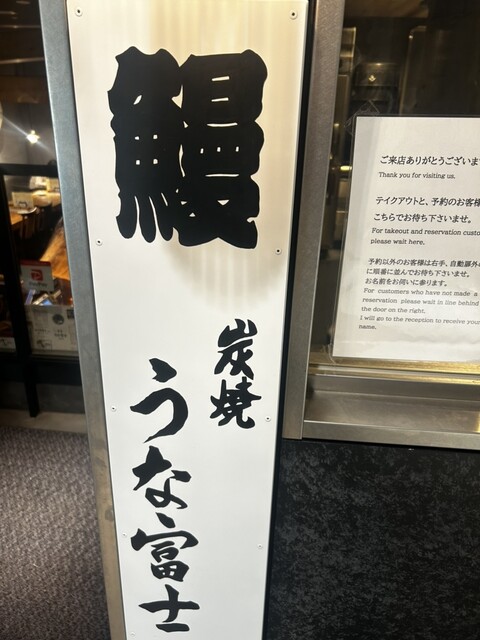 鰻
炭焼
うな富士
ご来店ありがとうございま
Thank you for visiting us.
テイクアウトと、予約のお客様
こちらでお待ち下さいませ。
For takeout and reservation custo
please wait here.
予約以外のお客様は右手、自動扉外
に順番に並んでお待ち下さいませ。
お名前をお伺いに参ります。
For customers who have not made a
reservation please wait in line behind
the door on the right.
I will go to the reception to receive your
name.